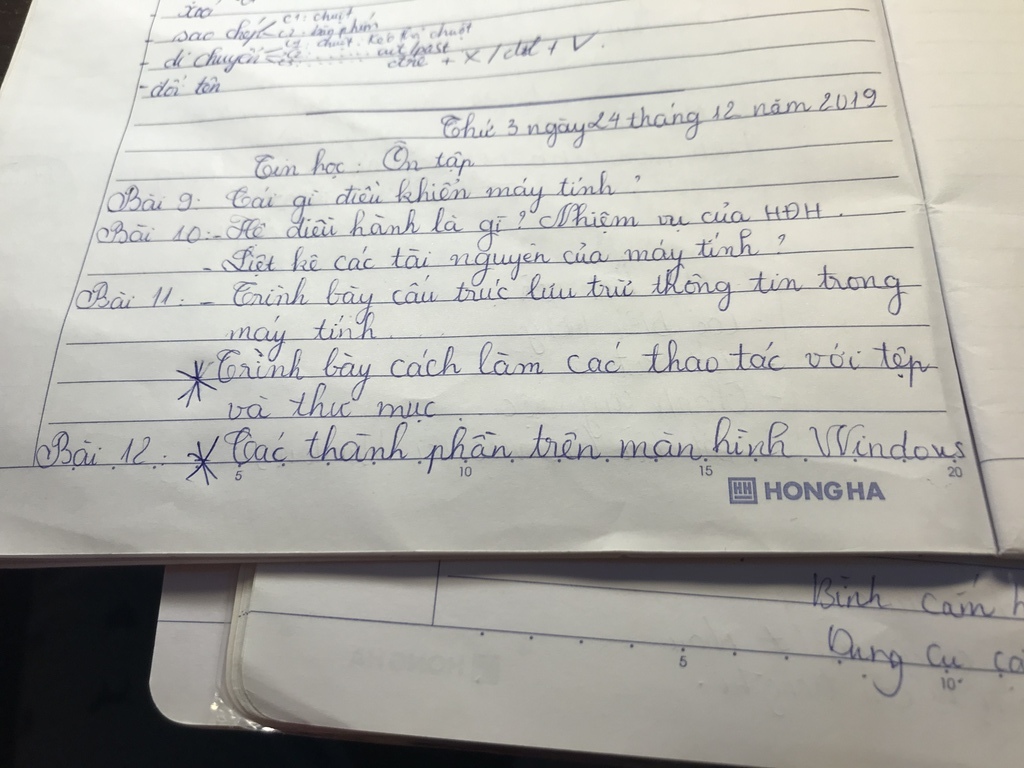 xoá
- sao chép < C1: chuột
C2: bàn phím
- di chuyển < C1: chuột. Kéo thả chuột
cut/past
ctrl + X / ctrl + V.
- đổi tên
Thứ 3 ngày 24 tháng 12 năm 2019
Tin học: Ôn tập
Bài 9: Cái gì điều khiển máy tính ?
Bài 10: - Hệ điều hành là gì ? Nhiệm vụ của HĐH.
- Liệt kê các tài nguyên của máy tính ?
Bài 11: - Trình bày cấu trúc lưu trữ thông tin trong
máy tính
* Trình bày cách làm các thao tác với tệp
và thư mục.
Bài 12: * Các thành phần trên màn hình Windows
5 10 15 20
HH HONG HA
Bình cắm h
Dụng cụ cắ
5 10
HONG HA